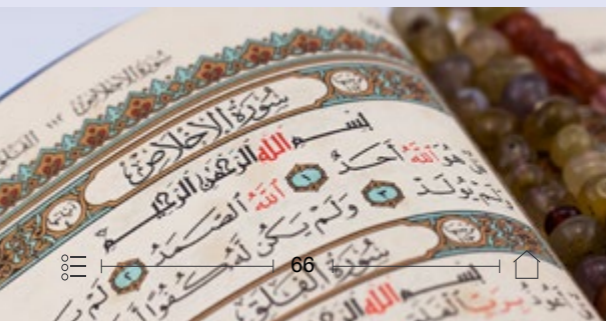 سُورَةُ الْإِخْلَاصِ
بِسْمِ اللَّهِ الرَّحْمَٰنِ الرَّحِيمِ
قُلْ هُوَ اللَّهُ أَحَدٌ ١ اللَّهُ الصَّمَدُ ٢ لَمْ
وَلَمْ يُولَدْ ٣ وَلَمْ يَكُن لَّهُ كُفُوًا
سُورَةُ الْفَلَقِ
بِسْمِ اللَّهِ
قُلْ أَعُوذُ بِرَبِّ الْفَلَقِ
66